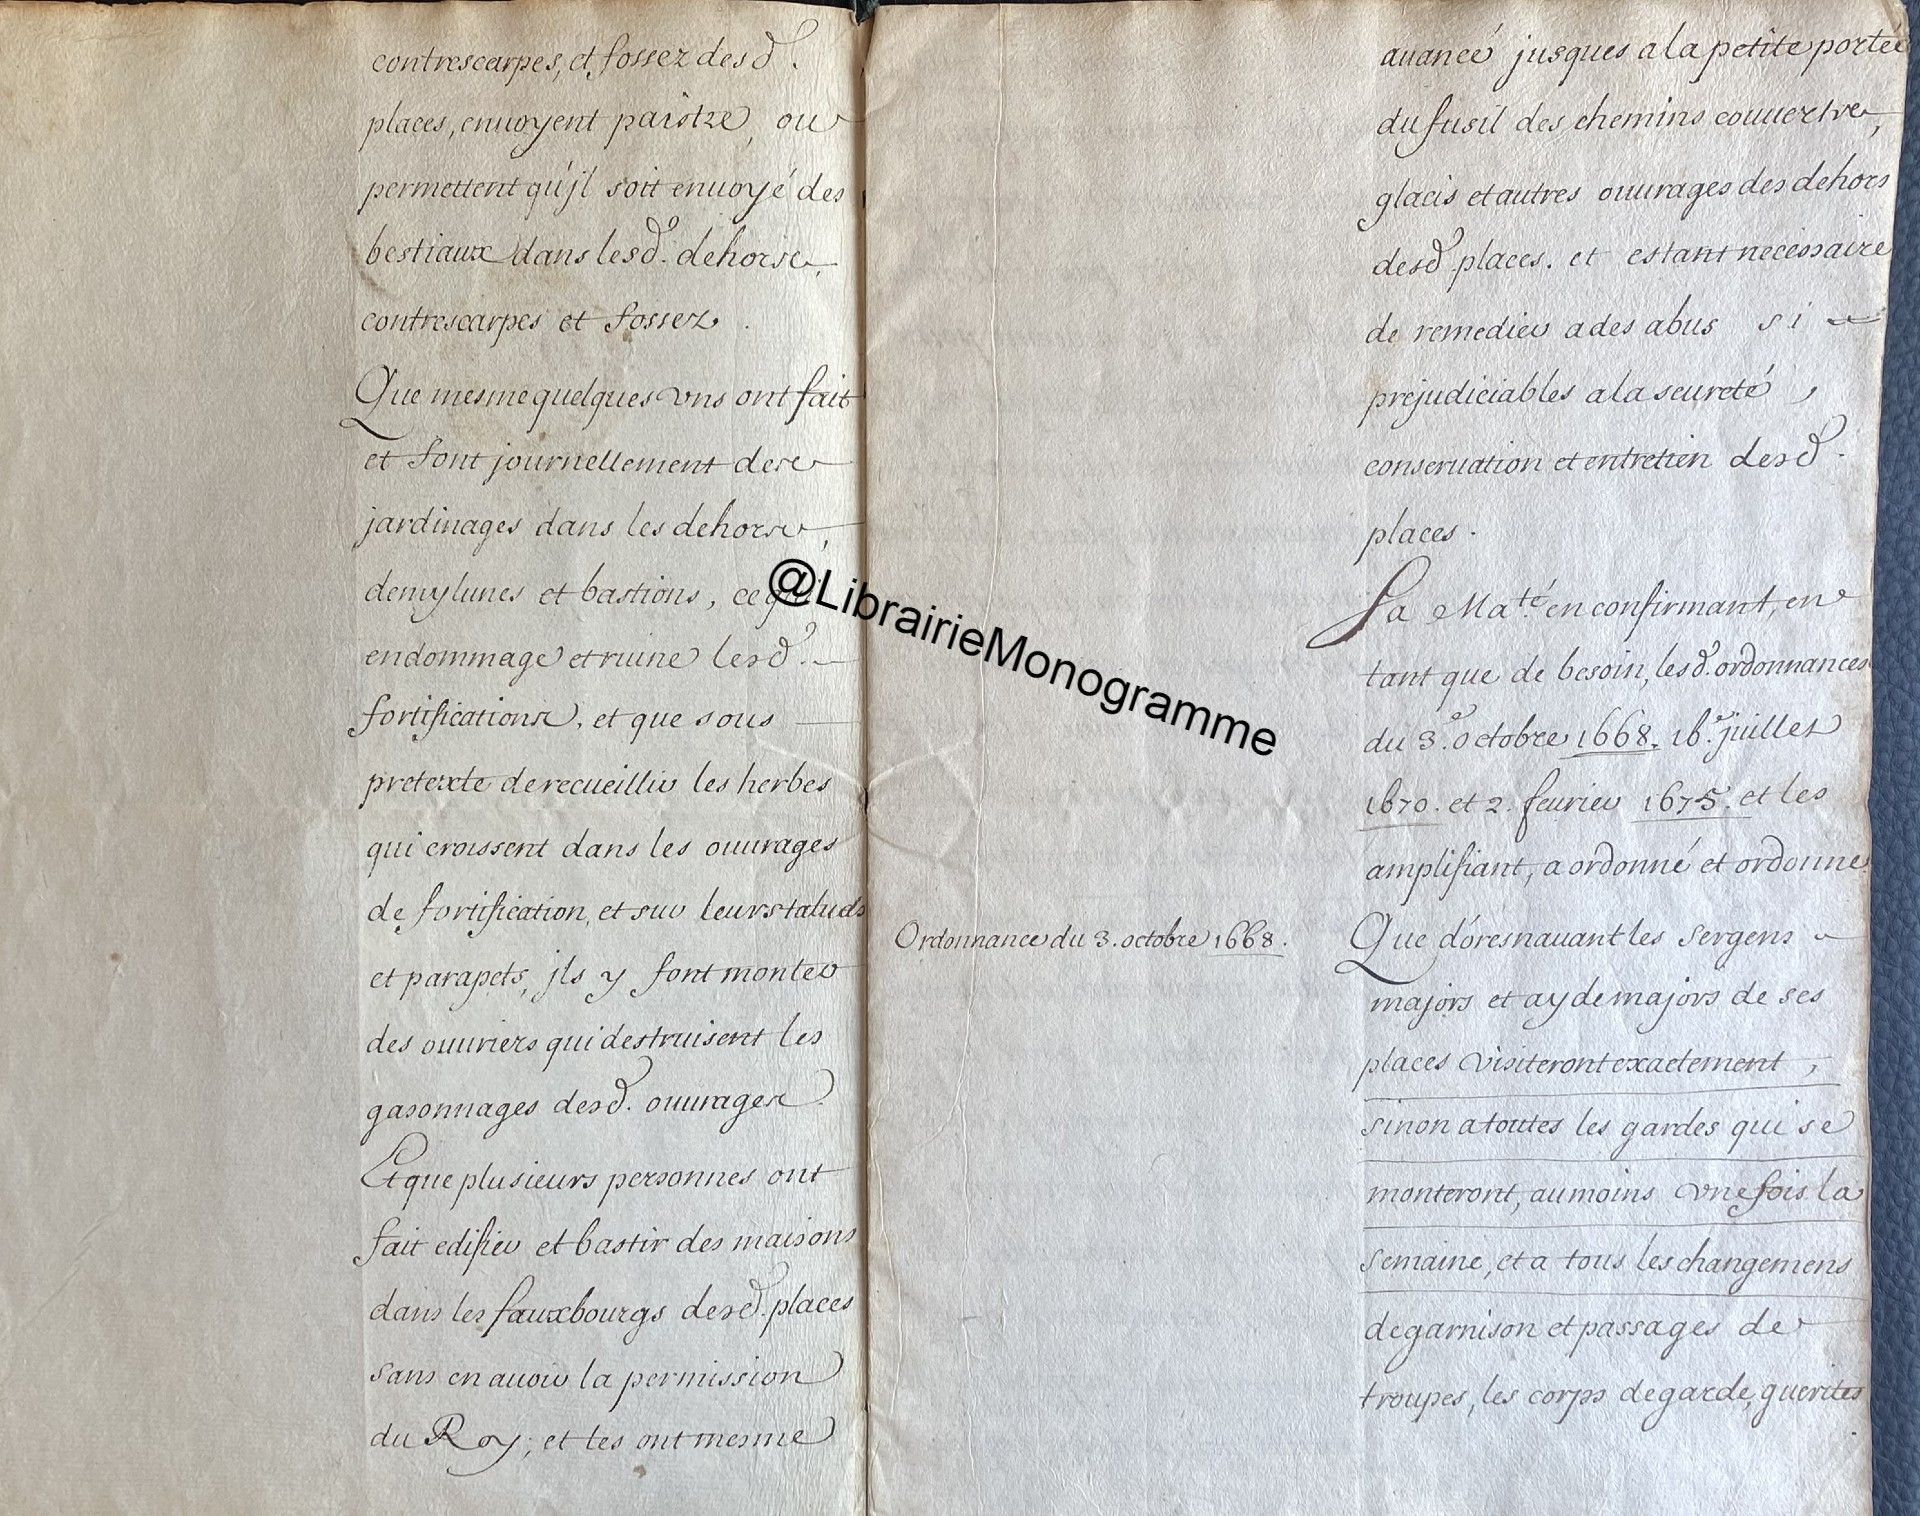 contrescarpes, et fossez desd.
places, enuoyent paistre, ou
permettent qu'jl soit enuoyé des
bestiaux dans lesd. dehors
contrescarpes et fossez.
Que mesme quelques vns ont fait
et font journellement des
jardinages dans les dehors,
demylunes et bastions, ce qui
endommage et ruine lesd.
fortifications, et que sous
pretexte de recueillir les herbes
qui croissent dans les ouurages
de fortification, et sur leurs taluds
et parapets, jls y font monter
des ouuriers qui destruisent les
gasonnages desd. ouurages
Et que plusieurs personnes ont
fait edifier et bastir des maisons
dans les fauxbourgs desd. places
sans en auoir la permission
du Roy, et les ont mesme
@LibrairieMonogramme
Ordonnance du 3. octobre 1668.
auancé jusques a la petite portée
du fusil des chemins couuerts,
glacis et autres ouurages des dehors
desd. places. et estant necessaire
de remedier a des abus si
prejudiciables a la seureté,
conseruation et entretien desd.
places.
Sa Ma.té en confirmant, en
tant que de besoin, lesd. ordonnances
du 3.e octobre 1668. 16.e juillet
1670. et 2. feurier 1675. et les
amplifiant, a ordonné et ordonne
Que d'oresnauant les sergens
majors et aydemajors de ses
places visiteront exactement,
sinon a toutes les gardes qui se
monteront, au moins vne fois la
semaine, et a tous les changemens
de garnison et passages de
troupes, les corps de garde, guerites